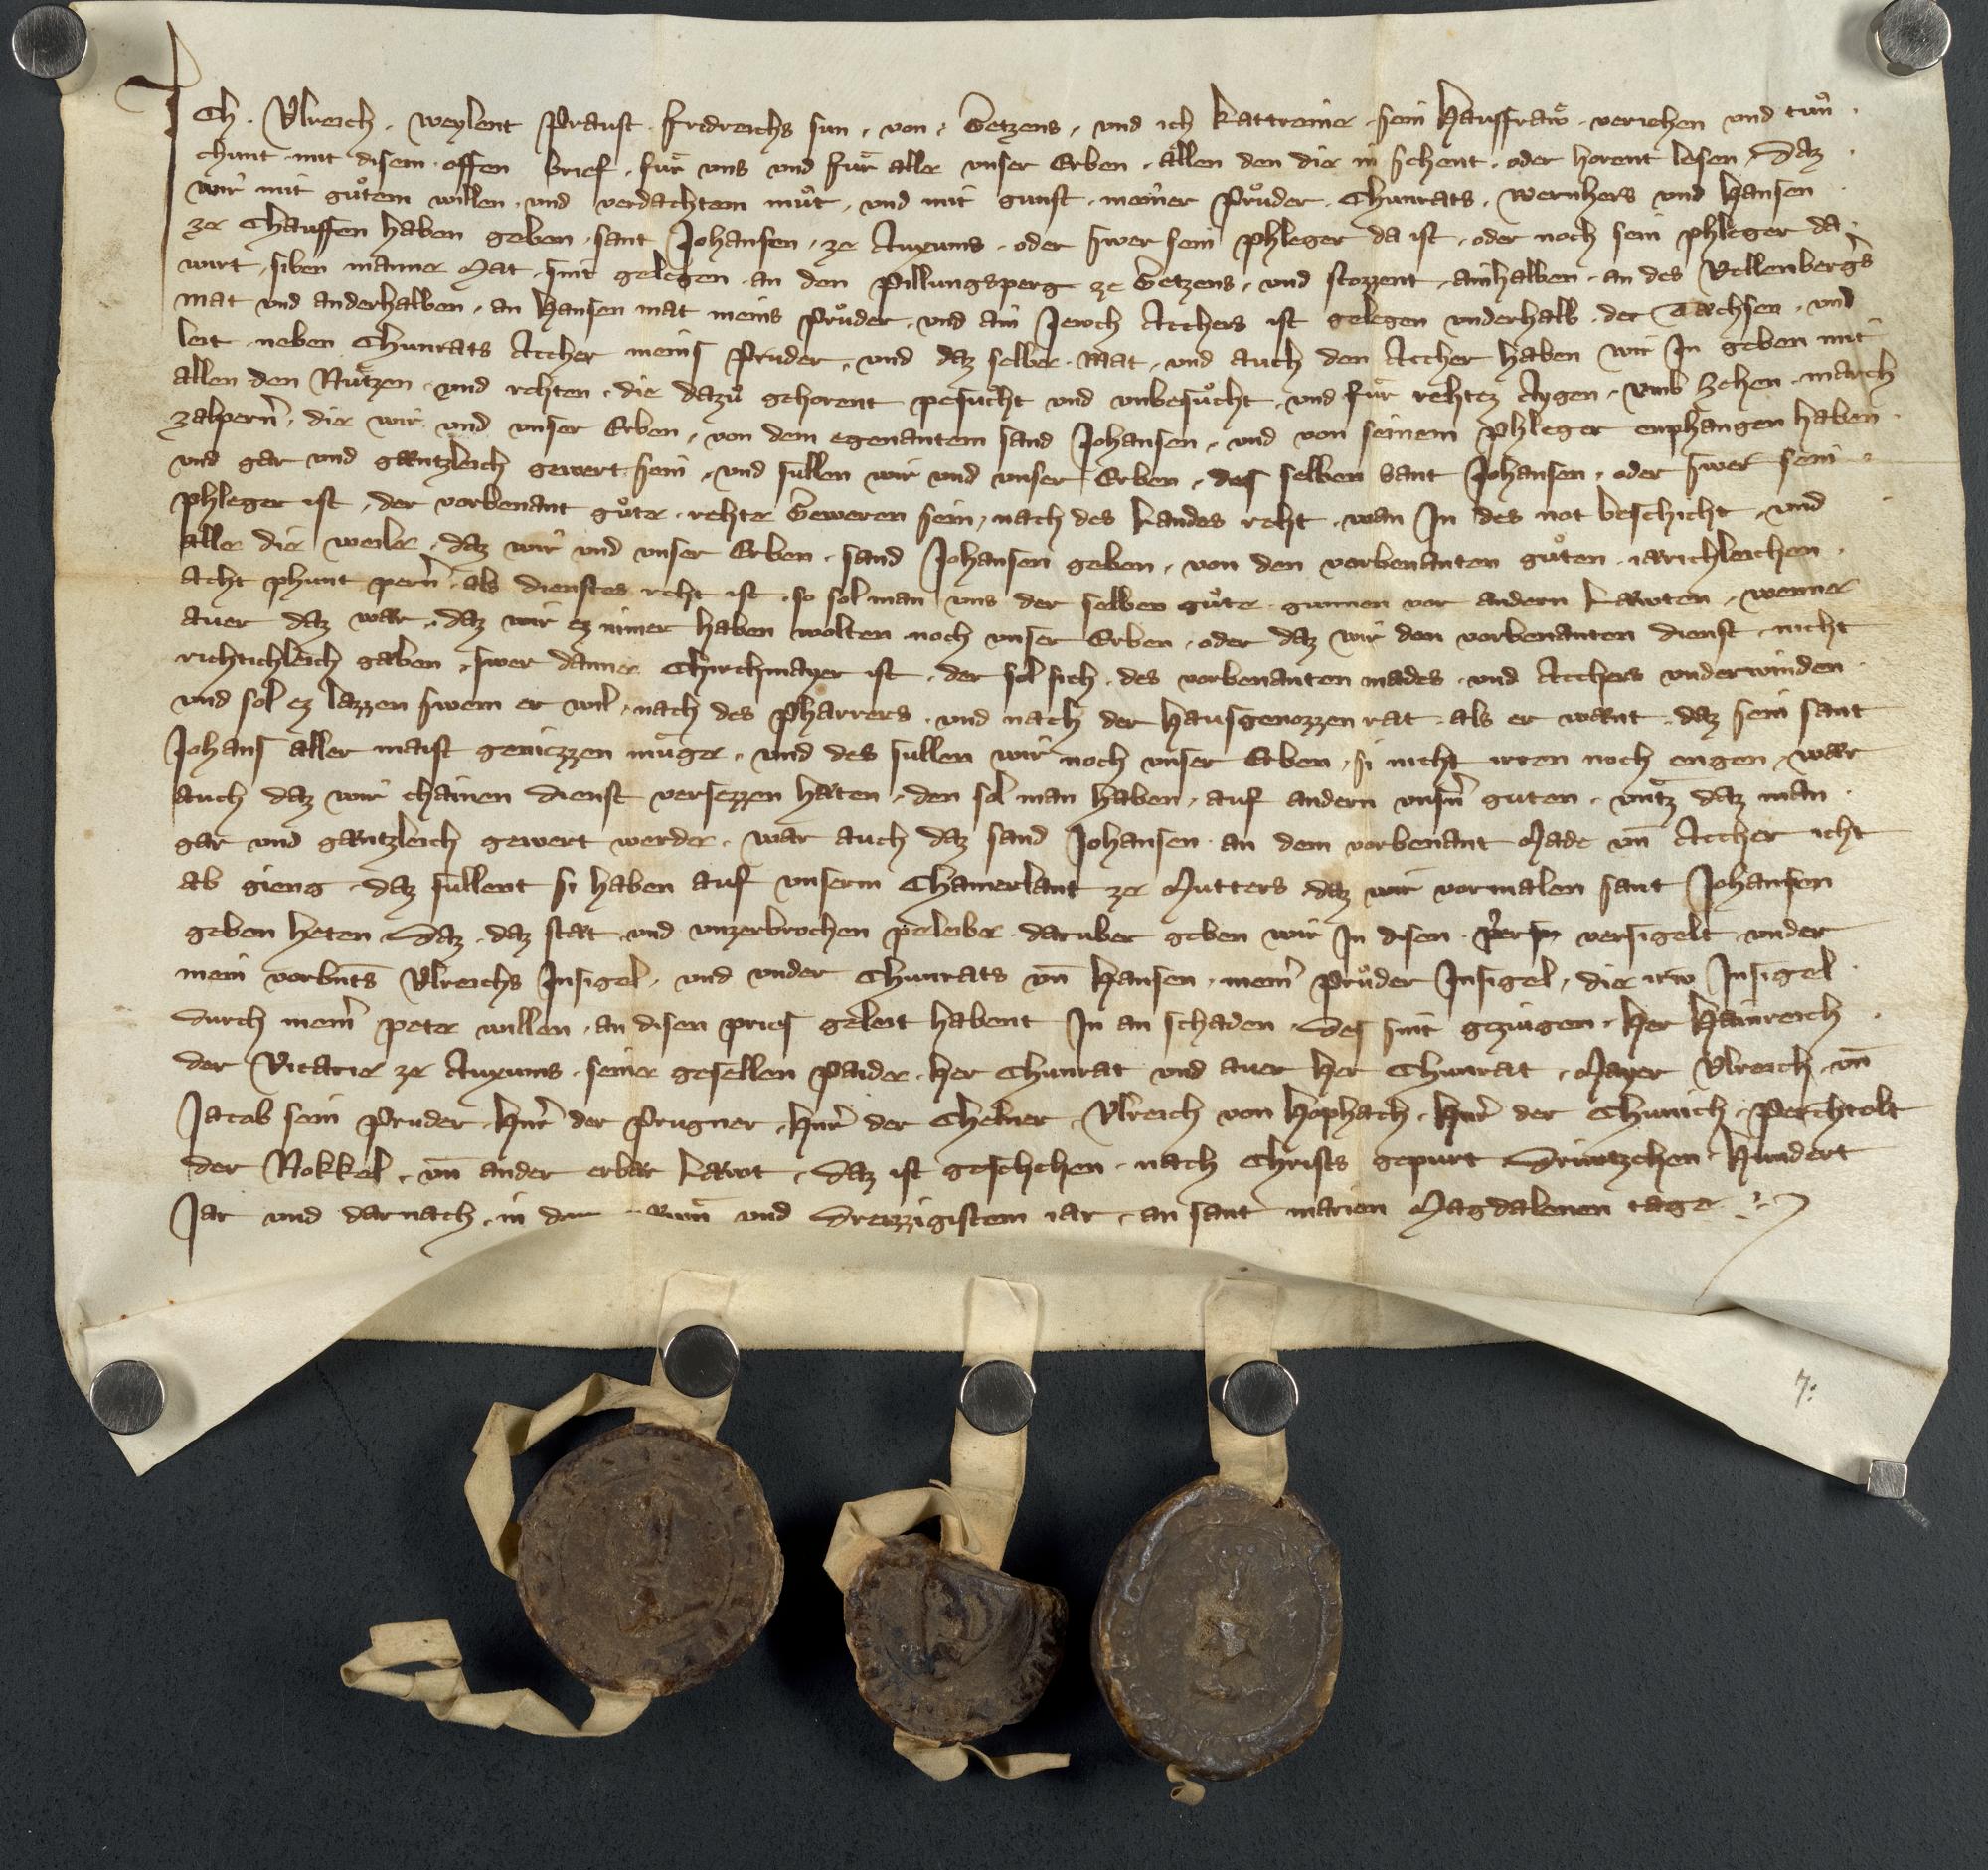 Ich . Vlreich . weylent Praust . fridreichs sun . von . Getzens . vnd ich Kattreine . sein Hausfraẘ . veriehen vnd tůn .
chunt . mit disem . offen brief . fuͤr vns vnd fuͤr alle vnser Erben . allen den die in sehent . oder horent lesen . Daz .
wir mit gůtem willen . vnd verdachtem můt . vnd mit gunst . meiner Průder . Chunrats . Wernhers vnd Hansen .
ze Chauffen haben geben . sant Johansen . ze Auxums . oder swer sein phleger da ist . oder noch sein phleger da .
wirt . siben manne Mat . sint gelegen . an den Pillungsperg ze Getzens . vnd stozzent . ainhalben . an des Vellenbergs
mat vnd anderhalben . an Hansen mat meins Průder . vnd ain Jewch Acchers ist gelegen vnderhalb . der Tæchsen . vnd
leit . neben Chunrats Accher meins Pruder . vnd daz selbe . mat . vnd auch den Accher haben wir In geben mit
allen den Nuͤtzen . vnd rehten . die dazů gehorent pesůcht vnd vnbesůcht . vnd fuͤr rehtez Aygen . vmb Zehen . march
zalpern̄ . die wir vnd vnser Erben . von dem egenantem sand Johansen . vnd von seinem Phleger enphangen haben .
vnd gar vnd gæntzleich gewert sein . vnd sullen wir vnd vnser Erben . des selben Sant Johansen . oder swer sein .
phleger ist . der vorbenant gůte . rehte Geweren sein . nach des Landes reht . wan In des not beschicht . vnd
alle die weile . daz wir vnd vnser Erben . sand Johansen geben . von den vorbenanten gůten . iærichleichen .
Acht phunt pern̄ . als dienstes reht ist . so sol man vns der selben gůte . gunnen vor andern Læwten . wenne
auer daz wær . daz wir ez nimer haben wolten noch vnser Erben . oder daz wir den vorbenanten dienst . nicht
richtichleich gaben . swer danne Chirchmayer ist . der sol sich . des vorbenanten mades . vnd Acchers vnderwinden .
vnd sol ez lazzen swem er wil . nach des Pharrers . vnd nach der Hausgenozzen rat . als er wænt . daz sein sant
Johans aller maist geniezzen muͤge . vnd des sullen wir noch vnser Erben . si nicht irren noch engen . wær
auch daz wir chainen dienst versezzen hæten . den sol man haben . auf andern vnsn̄ guten . vntz daz man .
gar vnd gæntzleich gewert werde . wær auch daz sand Johansen . an dem vorbenant Made vn̄ Accher icht
ab gieng . daz sullent si haben auf vnserm Chamerlant ze Mutters . daz wir vormalen sant Johansen
geben heten . Daz . daz stæt . vnd vnzerbrochen peleibe . daruber geben wir In disen . versigelt . vnder
mein vorbn̄ts Vlreichs Insigel . vnd vnder Chunrats vn̄ Hansen . mein̄ Průder Insigel . die irw̄ Insigel .
durch mein̄ pete willen . an disen prief geleit habent In an schaden . Des sint gezeugen . Her Hainreich .
der Vicarie ze Auxums . seine gesellen paide . Her Chunrat vnd auer Her Chunrat . Mayer Vlreich . vn̄
Jacob sein Pruder . Hnr̄ der Prugner . Hnr̄ der Chelner . Vlreich von Hophach . Hnr̄ der Chunich . Perchtolt
der Nokkel . vn̄ ander erbær Læwt . Daz ist geschehen . nach Christs gepurt Driwtzehen . Hundert
Jar vnd darnach . in dem vnd Dreizzigistem iar . an sant marien Magdalenen tage
7: